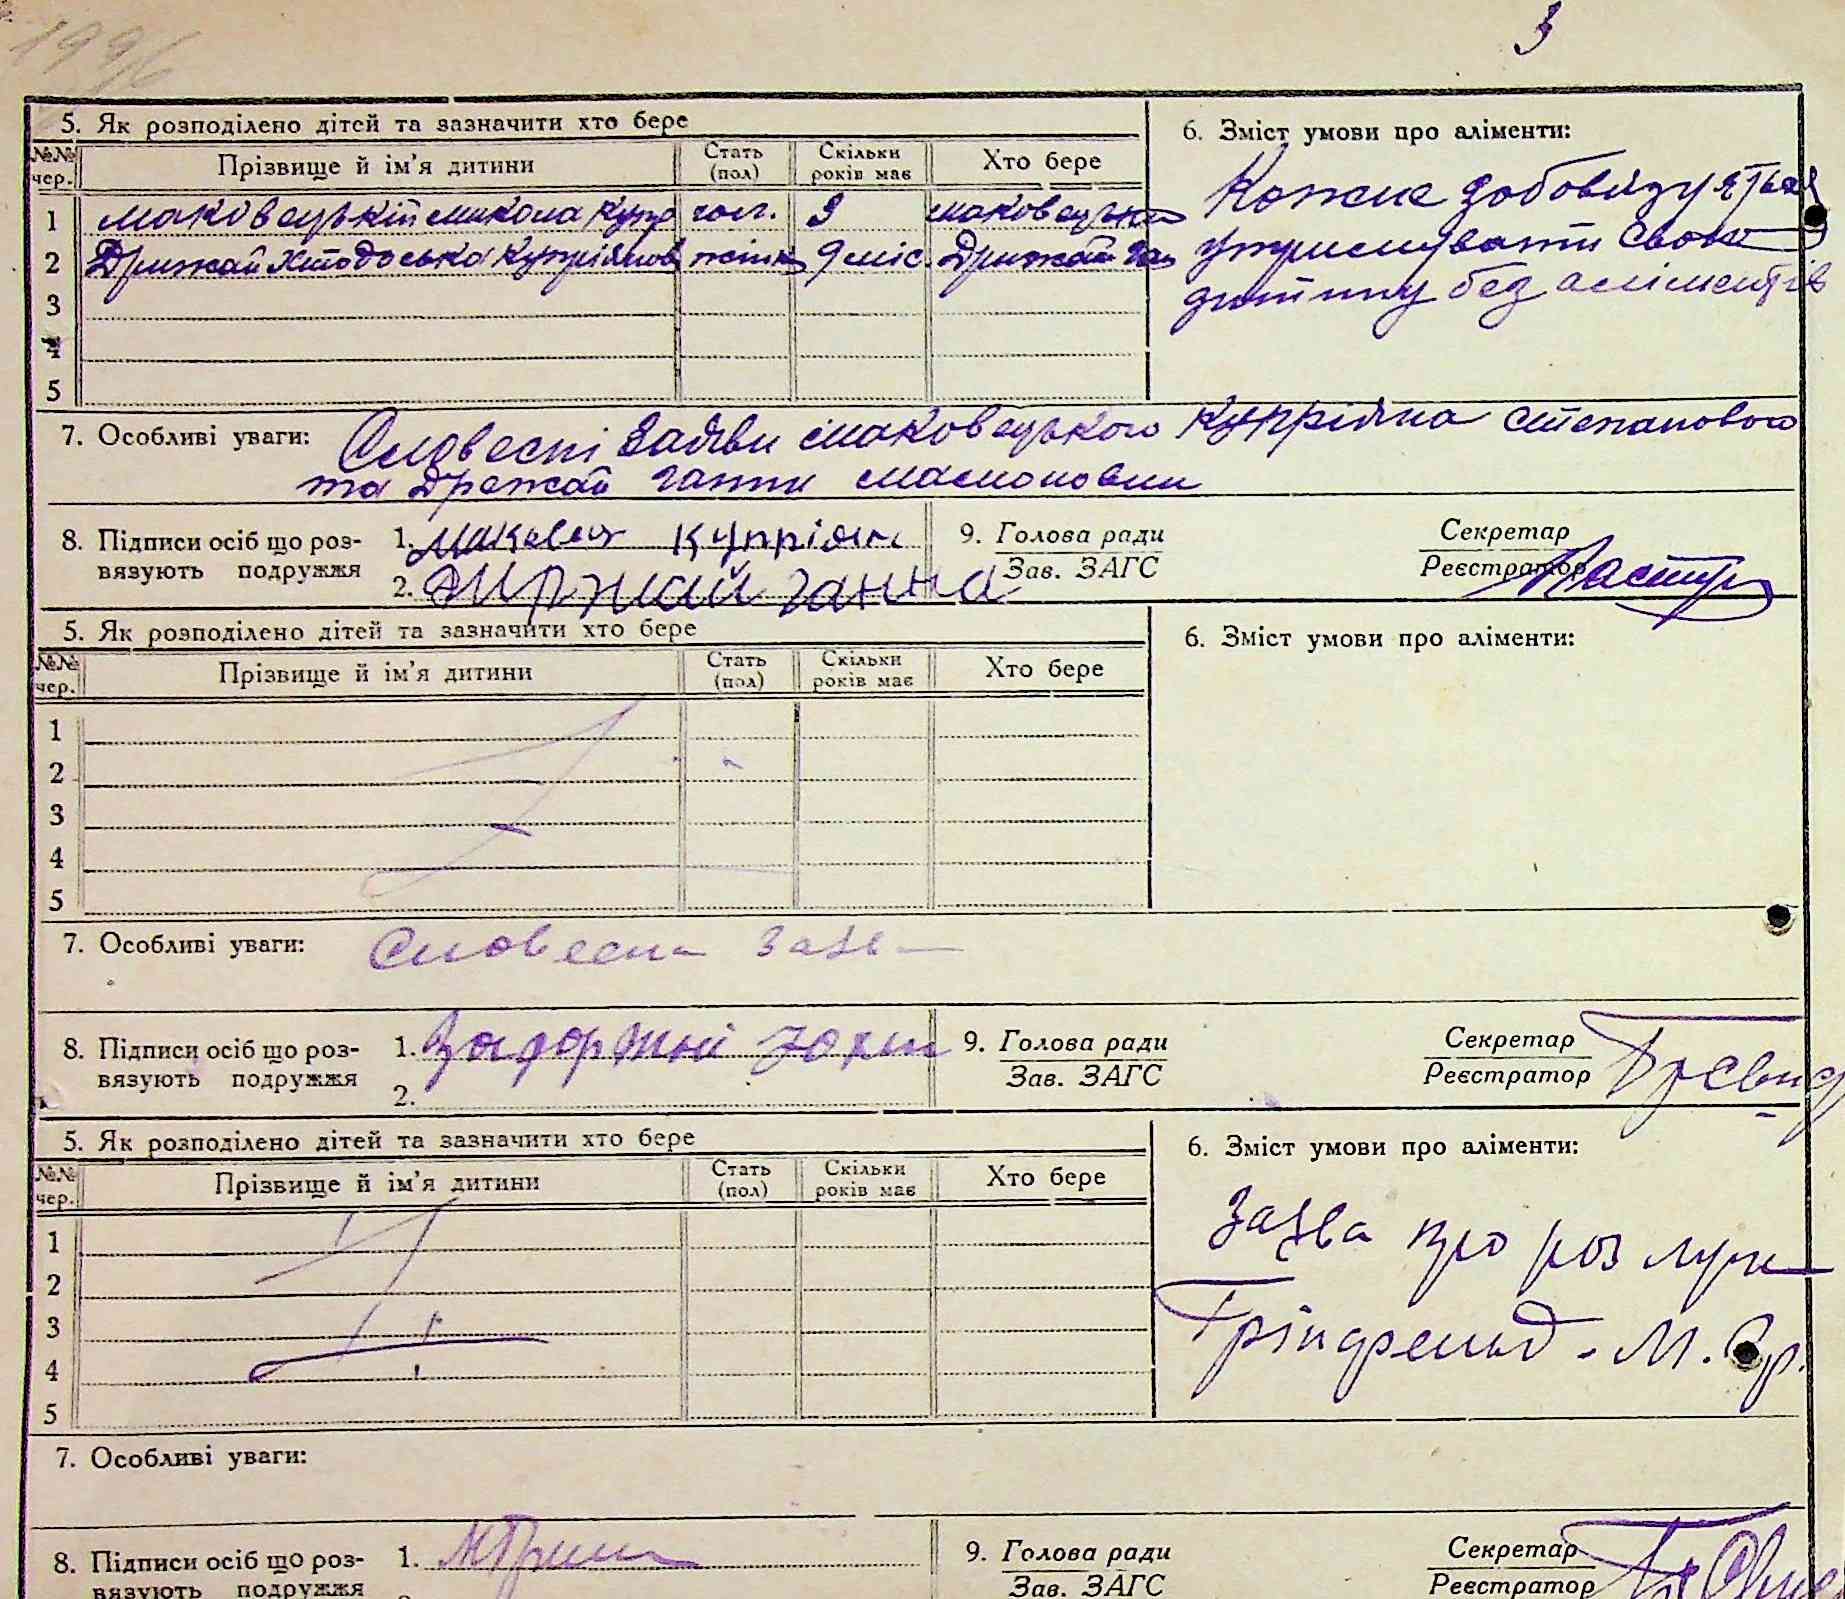 1996
3
5. Як розподілено дітей та зазначити хто бере
6. Зміст умови про аліменти:
№№ чер. Прізвище й ім'я дитини Стать (пол) Скільки років має Хто бере
1 Маковецькій Микола Купр чол. 3 Маковецьки
Кожне зобовязуяться
2 Држай Хтодоська Купріянов жінк 9 міс. Држай Ган
утримувати свою
3
дитину без аліментів
4
5
7. Особливі уваги: Словесні заяви Маковецького Купріяна Степанового
та Држай Ганни
8. Підписи осіб що роз-вязують подружжя
1. Маковец Купріян
2. Држай Ганна
9. Голова ради
Зав. ЗАГС
Секретар
Реєстратор
5. Як розподілено дітей та зазначити хто бере
6. Зміст умови про аліменти:
№№ чер. Прізвище й ім'я дитини Стать (пол) Скільки років має Хто бере
1
2
3
4
5
7. Особливі уваги: Словесна заява
8. Підписи осіб що роз-вязують подружжя
1.
2.
9. Голова ради
Зав. ЗАГС
Секретар
Реєстратор
5. Як розподілено дітей та зазначити хто бере
6. Зміст умови про аліменти:
№№ чер. Прізвище й ім'я дитини Стать (пол) Скільки років має Хто бере
1
Заява про розлуку
2
3
Грінфельд. М.
4
5
7. Особливі уваги:
8. Підписи осіб що роз-вязують подружжя
1.
9. Голова ради
Зав. ЗАГС
Секретар
Реєстратор